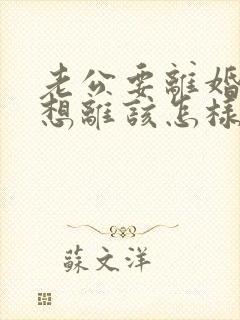 老公要離婚
想離該怎樣
蘇文洋